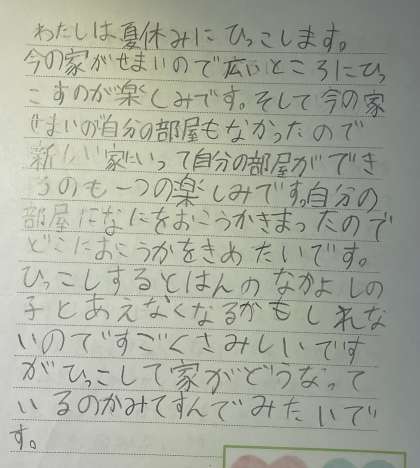 わたしは夏休みにひっこします。
今の家がせまいので広いところにひっ
こすのが楽しみです。そして今の家
せまいのが自分の部屋もなかったので
新しい家にいって自分の部屋ができ
るのも一つの楽しみです。自分の
部屋になにをおこうかきまったので
どこにおこうかをきめたいです。
ひっこしするとはんのなかよしの
子とあえなくなるかもしれな
いのですごくさみしいです
がひっこして家がどうなって
いるのかみてすんでみたいで
す。